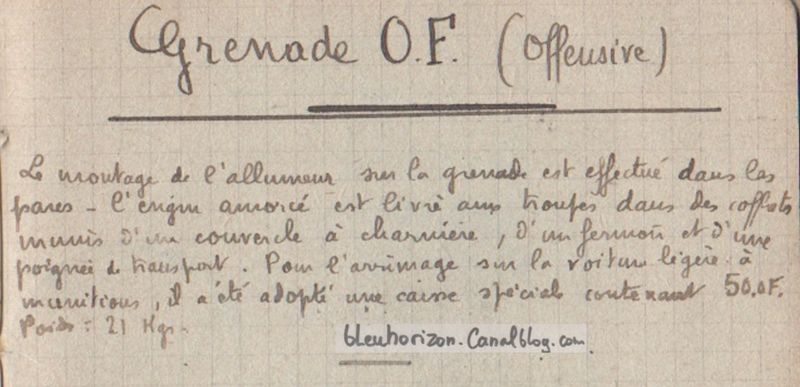 Grenade O.F. (Offensive)
Le montage de l'allumeur sur la grenade est effectué dans les
parcs - l'engin amorcé est livré aux troupes dans des coffrets
munis d'un couvercle à charnière, d'un fermoir et d'une
poignée de transport. Pour l'arrimage sur la voiture légère à
munitions, il a été adopté une caisse spéciale contenant 50.O.F.
Poids : 21 Kgs.
bleuhorizon.Canalblog.com